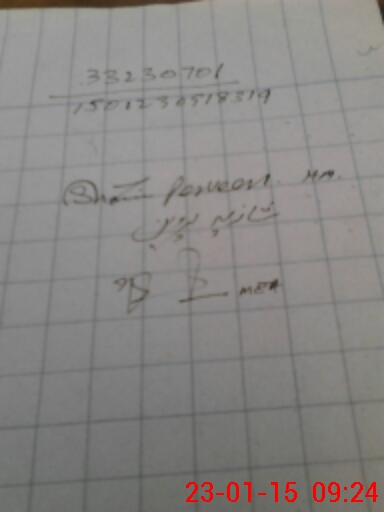 33230701
1501230518319
Perveen HM.
شازیہ پروین
MEA
23-01-15 09:24